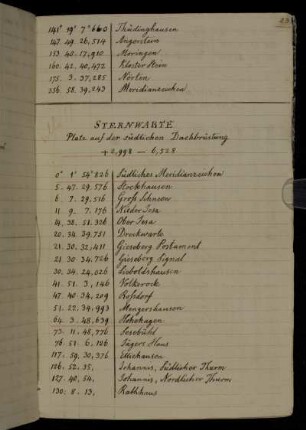 141° 19' 7"663 Thüdinghausen
147. 49. 26,514 Angerstein
153. 40. 17,910 Moringen
160. 42. 40,472 Kloster Stein
175. 3. 37,285 Nörten
356. 58. 39,243 Meridianzeichen
STERNWARTE
Platz auf der südlichen Dachbrüstung
+ 2,998 — 6,528
0° 1' 54"826 Südliches Meridianzeichen
5. 47. 29,576 Stockhausen
6. 7. 29,516 Gross Schneen
11. 9. 7,176 Nieder Jesa
14. 38. 51,326 Ober Jesa
20. 24. 39,751 Deckwarte
21. 30. 32,411 Gieseberg Postament
21. 30. 34,726 Gieseberg Signal
30. 34. 24,026 Sieboldshausen
41. 51. 3,146 Volkerode
47. 40. 34,209 Rosdorf
51. 27. 34,993 Mengershausen
64. 3. 48,639 Hohehagen
73. 11. 48,776 Sesebühl
76. 51. 6,106 Jäger Haus
117. 59. 30,376 Ellichausen
126. 52. 35, Johannis, Südlicher Thurm
127. 40. 54, Johannis, Nördlicher Thurm
130. 8. 13, Rathhaus